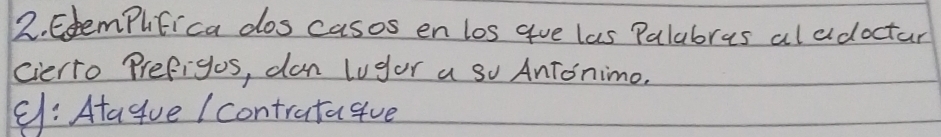 2. Edemplifica dos casos en los que las Palabras al adoctar
cierto Prefigos, dan lugar a su Antónimo.
Ej: Ataque / contrataque